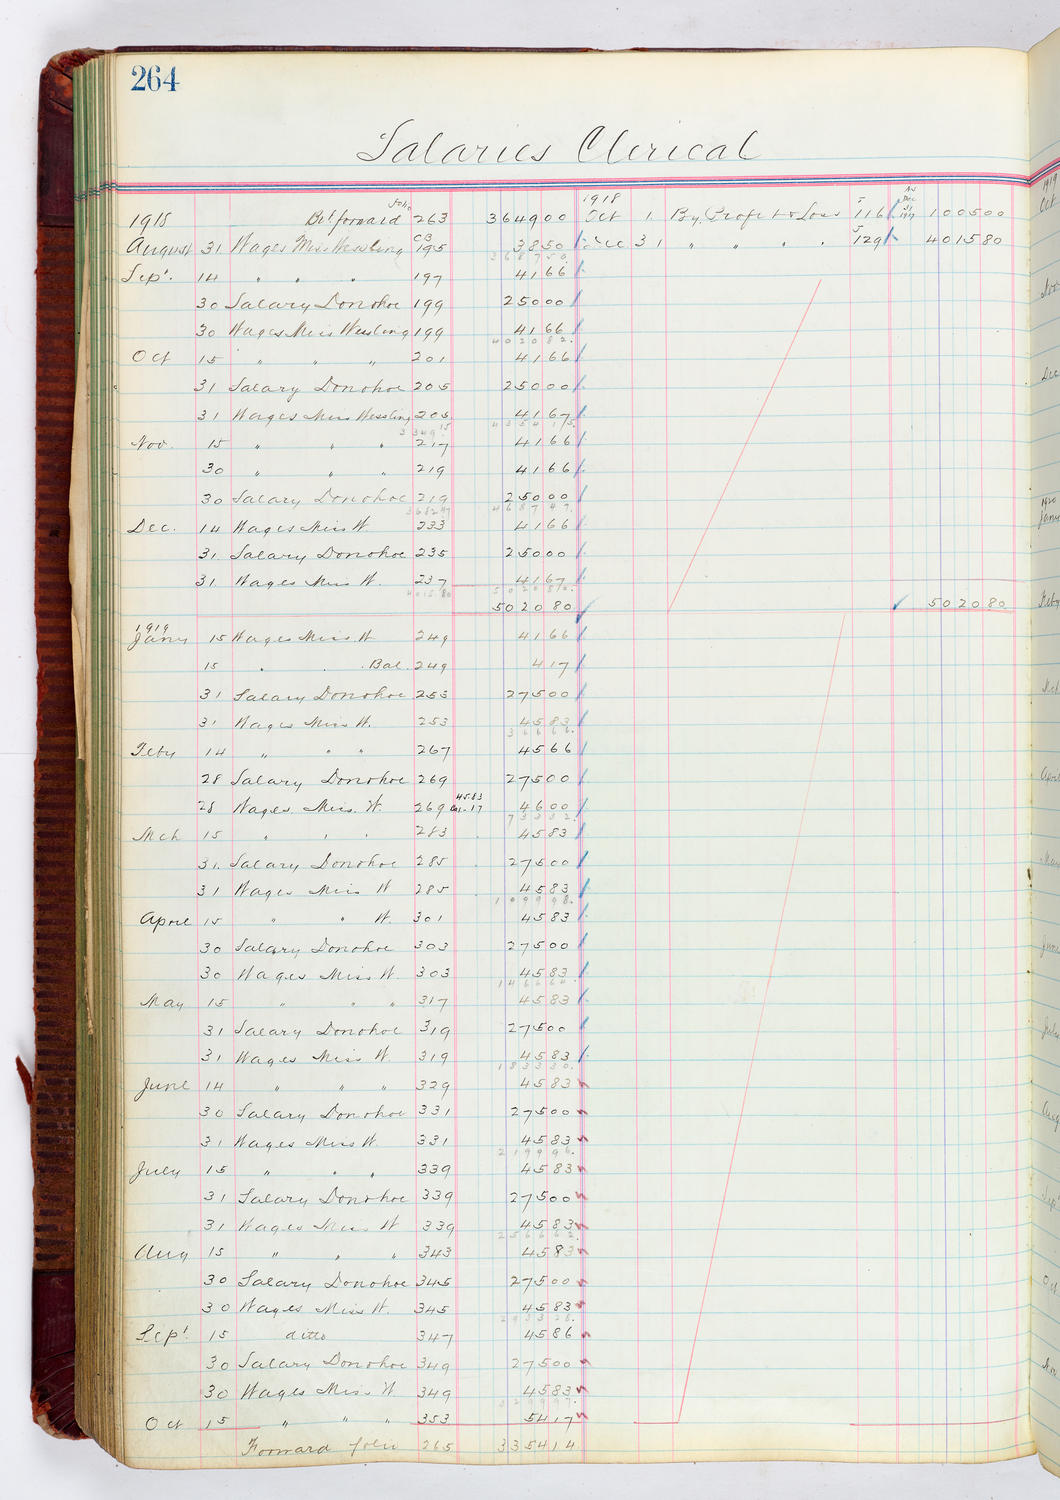 264
Salaries Clerical
1918 Bal. forward folio 263 3649 00
August 31 Wages Miss Wessling CB 195 38 50
3687 50
Sept. 14 " " " 197 41 66
30 Salary Donohoe 199 250 00
30 Wages Miss Wessling 199 41 66
4020 82
Oct 15 " " " 201 41 66
31 Salary Donohoe 205 250 00
31 Wages Miss Wessling 205 41 67
4354 15
3349 15
Nov. 15 " " " 217 41 66
30 " " " 219 41 66
30 Salary Donohoe 219 250 00
3682 47 4687 47
Dec. 14 Wages Miss W. 233 41 66
31. Salary Donohoe 235 250 00
31 Wages Miss W. 237 41 67
4015 80 5020 80
5020 80
1918
Oct 1 By Profit & Loss J 116 As Dec 31 1917 1005 00
Dec 31 " " " " J 129 4015 80
5020 80
1919
Jany 15 Wages Miss W 249 41 66
15 " " Bal. 249 4 17
31 Salary Donohoe 253 275 00
31 Wages Miss W. 253 45 83
366 66
Feby 14 " " " 267 45 66
28 Salary Donohoe 269 275 00
28 Wages Miss. W. 269 45.83 .17 46 00
733 32
Mch 15 " " " 283 45 83
31. Salary Donohoe 285 275 00
31 Wages Miss W 285 45 83
1099 98
April 15 " " W. 301 45 83
30 Salary Donohoe 303 275 00
30 Wages Miss W. 303 45 83
1466 64
May 15 " " " 317 45 83
31 Salary Donohoe 319 275 00
31 Wages Miss W. 319 45 83
1833 30
June 14 " " " 329 45 83
30 Salary Donohoe 331 275 00
31 Wages Miss W. 331 45 83
2199 96
July 15 " " " 339 45 83
31 Salary Donohoe 339 275 00
31 Wages Miss W 339 45 83
2566 62
Aug 15 " " " 343 45 83
30 Salary Donohoe 345 275 00
30 Wages Miss W. 345 45 83
2933 28
Sept. 15 ditto 347 45 86
30 Salary Donohoe 349 275 00
30 Wages Miss W 349 45 83
3299 97
Oct 15 " " " 353 54 17
Forward folio 265 3354 14
1919
Oct
Nov
Dec
1920
Jany
Feby
Mch
April
May
June
July
Aug
Sept
Oct
Nov